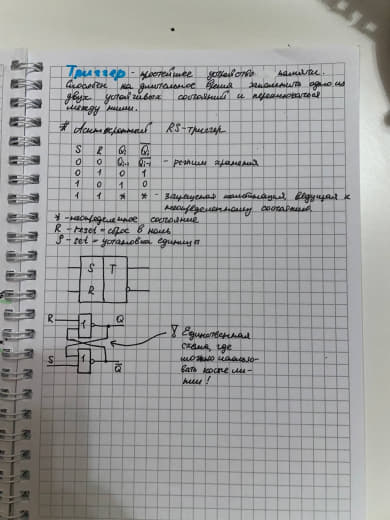 Триггер - простейшее устройство памяти.
Способен на длительное время запоминать одно из
двух устойчивых состояний и переключаться
между ними.
# Асинхронный RS-триггер
S R Qi Q̅i
0 0 Qi-1 Q̅i-1 - режим хранения
0 1 0 1
1 0 1 0
1 1 * * - запрещённая комбинация, ведущая к
неопределённому состоянию.
* - неопределённое состояние
R - reset = сброс в ноль
S - set = установка единицы
S T
R
R 1 Q
S 1 Q̅
! Единственная
схема, где
можно использо-
вать косые ли-
нии!